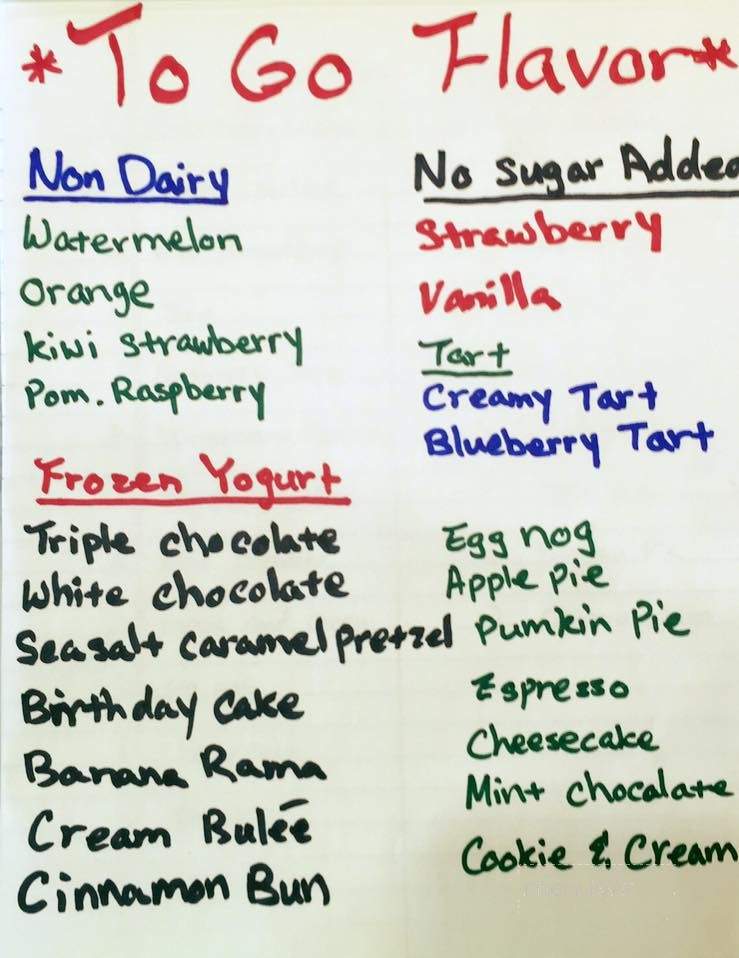 *To Go Flavor*
Non Dairy
Watermelon
Orange
Kiwi Strawberry
Pom. Raspberry
Frozen Yogurt
Triple chocolate
White chocolate
Seasalt caramel pretzel
Birthday cake
Banana Rama
Cream Bulēe
Cinnamon Bun
No sugar Added
Strawberry
Vanilla
Tart
Creamy Tart
Blueberry Tart
Egg nog
Apple pie
Pumkin Pie
Espresso
Cheesecake
Mint chocalate
Cookie & Cream